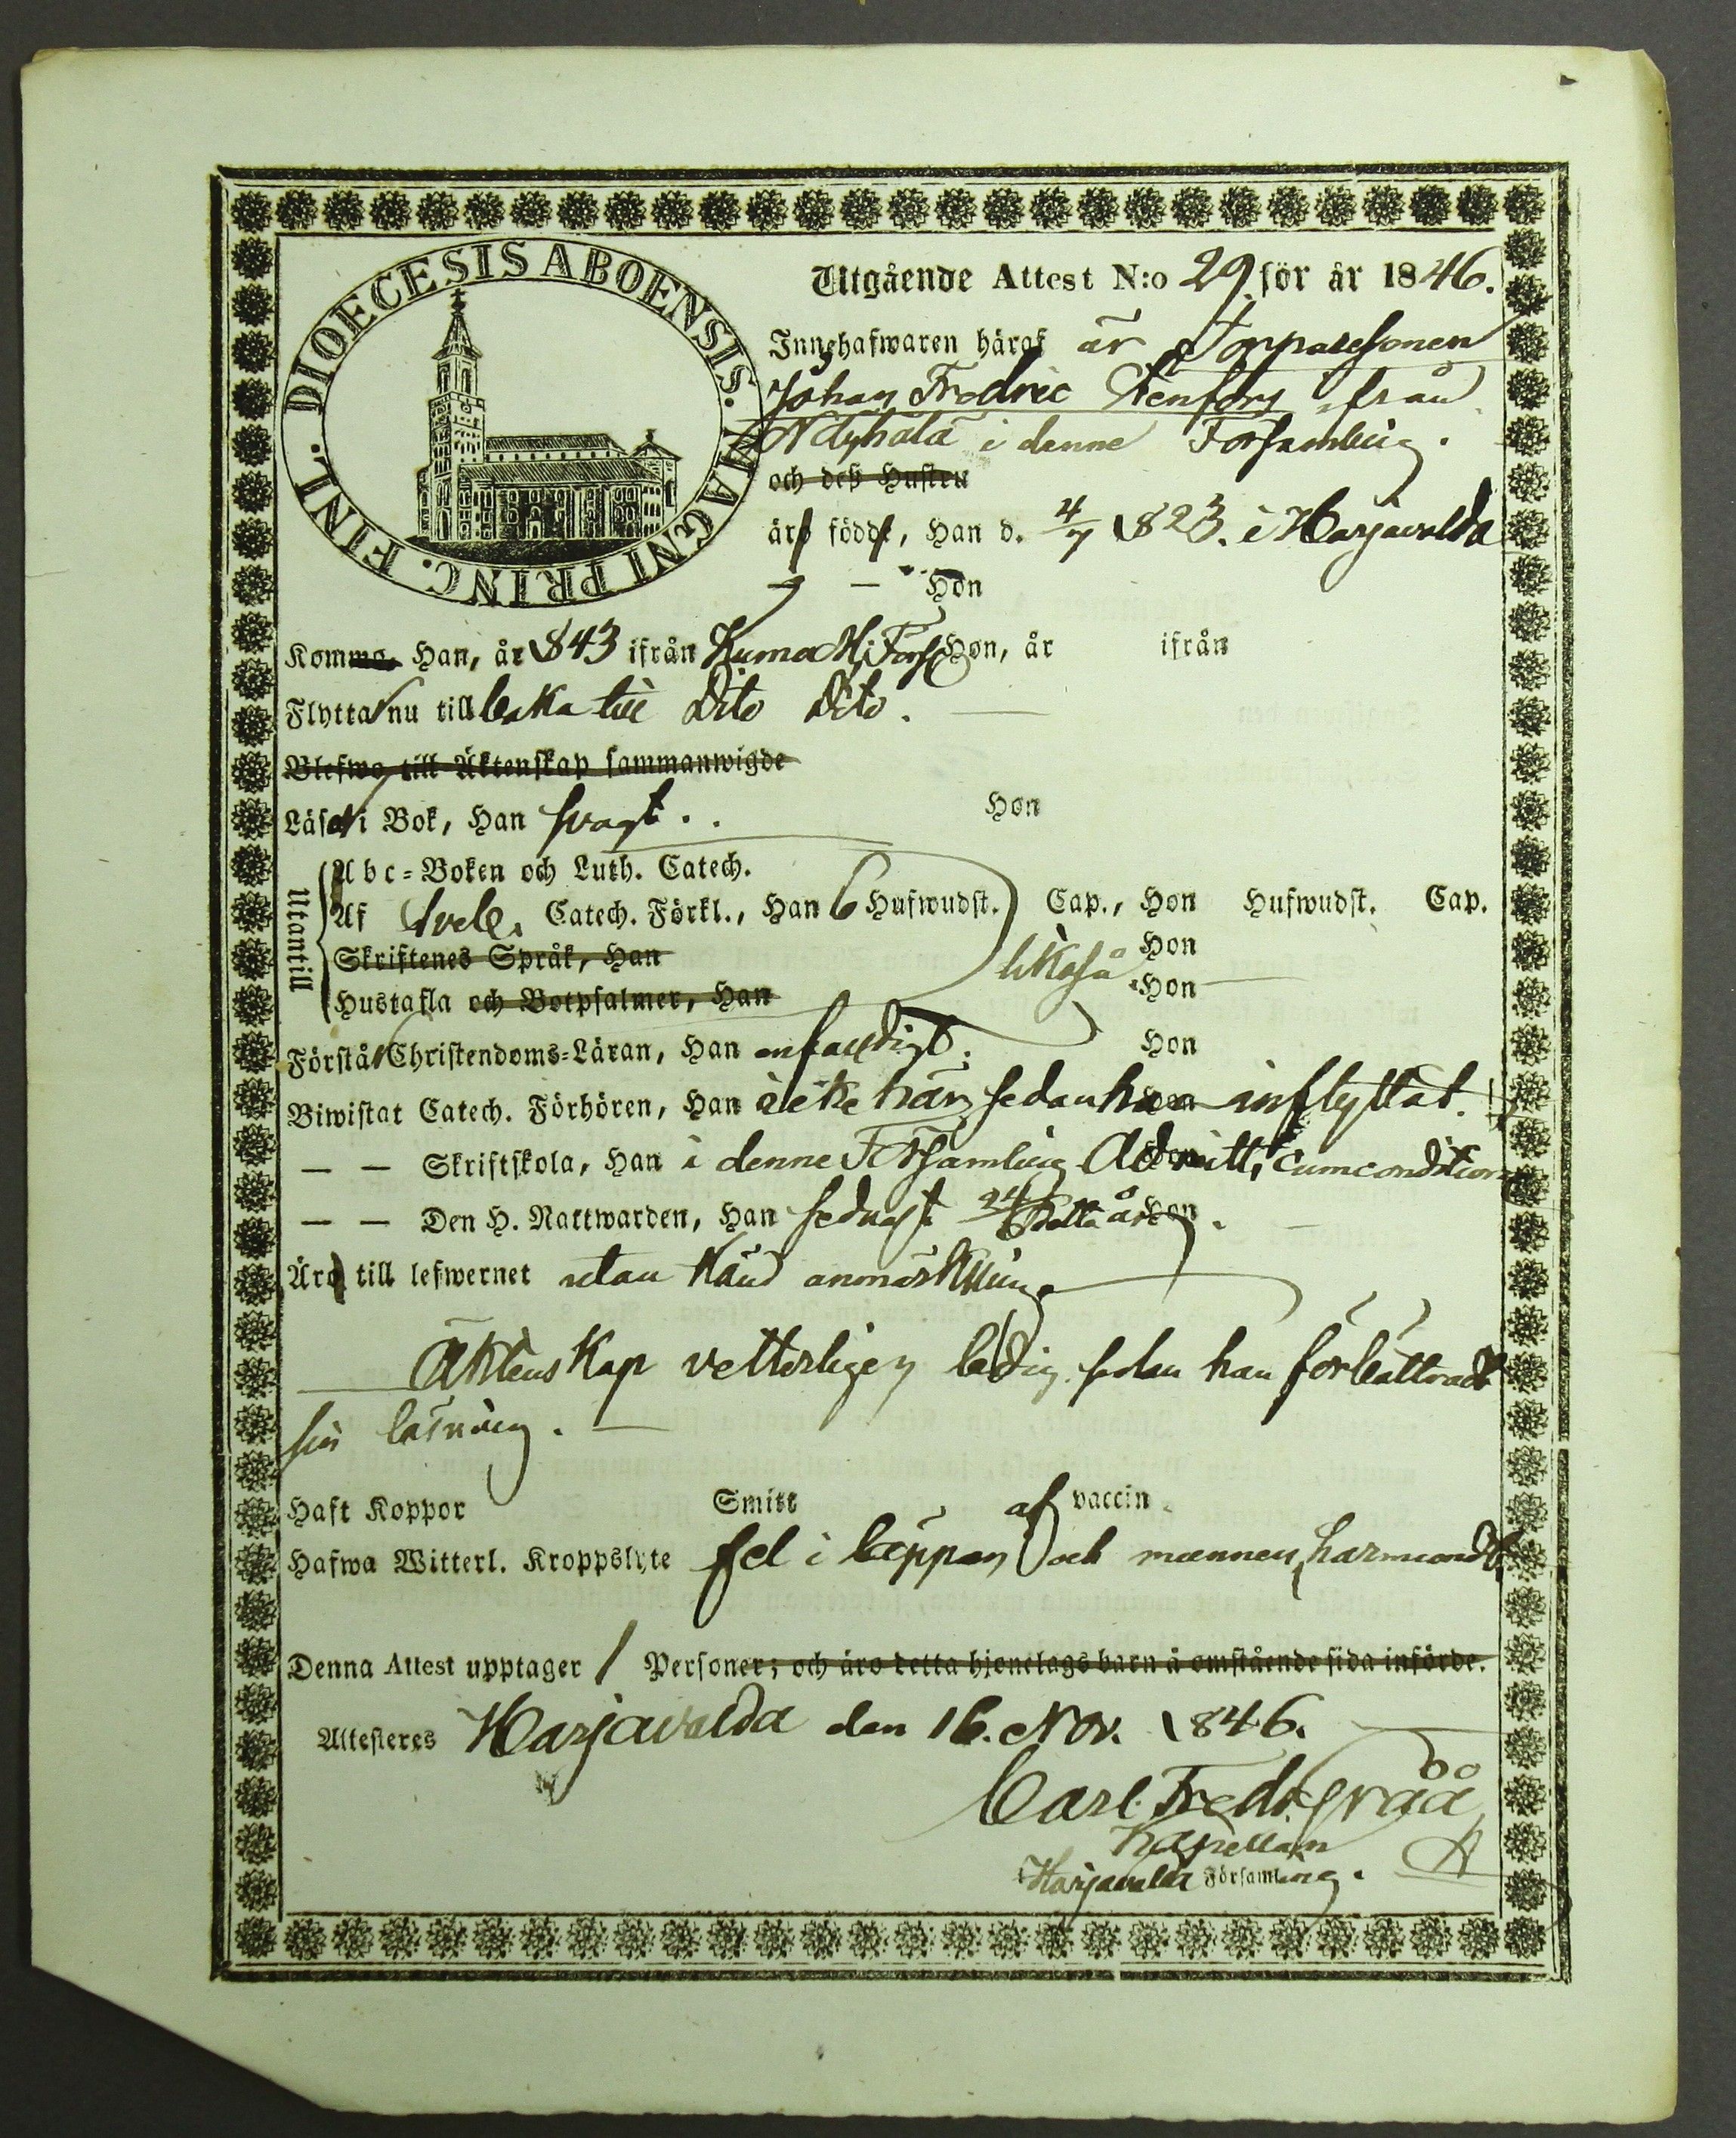 DIOECESIS ABOENSIS. MAGNI PRINC. FINL.
Utgående Attest N:o 29 för år 1846.
Innehafwaren häraf är Torparesonen
Johan Fredric Stenfors ifrån
i denne Församling.
och deß Hustru
äro födde, Han d. 4/7 1823. i Harjavalda
— Hon
Komma, Han, år 843 ifrån Kumo M. Förs. Hon, år ifrån
Flytta nu till baka till Dito Dito.
Blefwo till Äktenskap sammanwigde
Läsa i Bok, Han svagt. Hon
Utantill
Abc-Boken och Luth. Catech.
Af Sveb. Catech. Förkl., Han 6 Hufwudst. Cap., Hon Hufwudst. Cap.
Skriftenes Språk, Han Hon
likaså
Hustafla och Botpsalmer, Han Hon
Förstå Christendoms-Läran, Han enfaldigt. Hon
Biwistat Catech. Förhören, Han icke här sedan han inflyttat.
— — Skriftskola, Han i denne Församling Admitt. cum conditione
— — Den H. Nattwarden, Han sednast detta år Hon
Äro till lefwernet utan känd anmärkning
Äktenskap vetterligen ledig sedan han förbättradt
sin läsning.
Haft Koppor Smitt af vaccin
Hafwa Witterl. Kroppslyte fel i läppen och munnen, harmundt,
Denna Attest upptager 1 Personer; och äro detta hjonelags barn å omstående sida införde.
Attesteres Harjavalda den 16. Nov. 1846.
Carl Fredr. Gråå
Kapellan
i Harjavalda Församling.